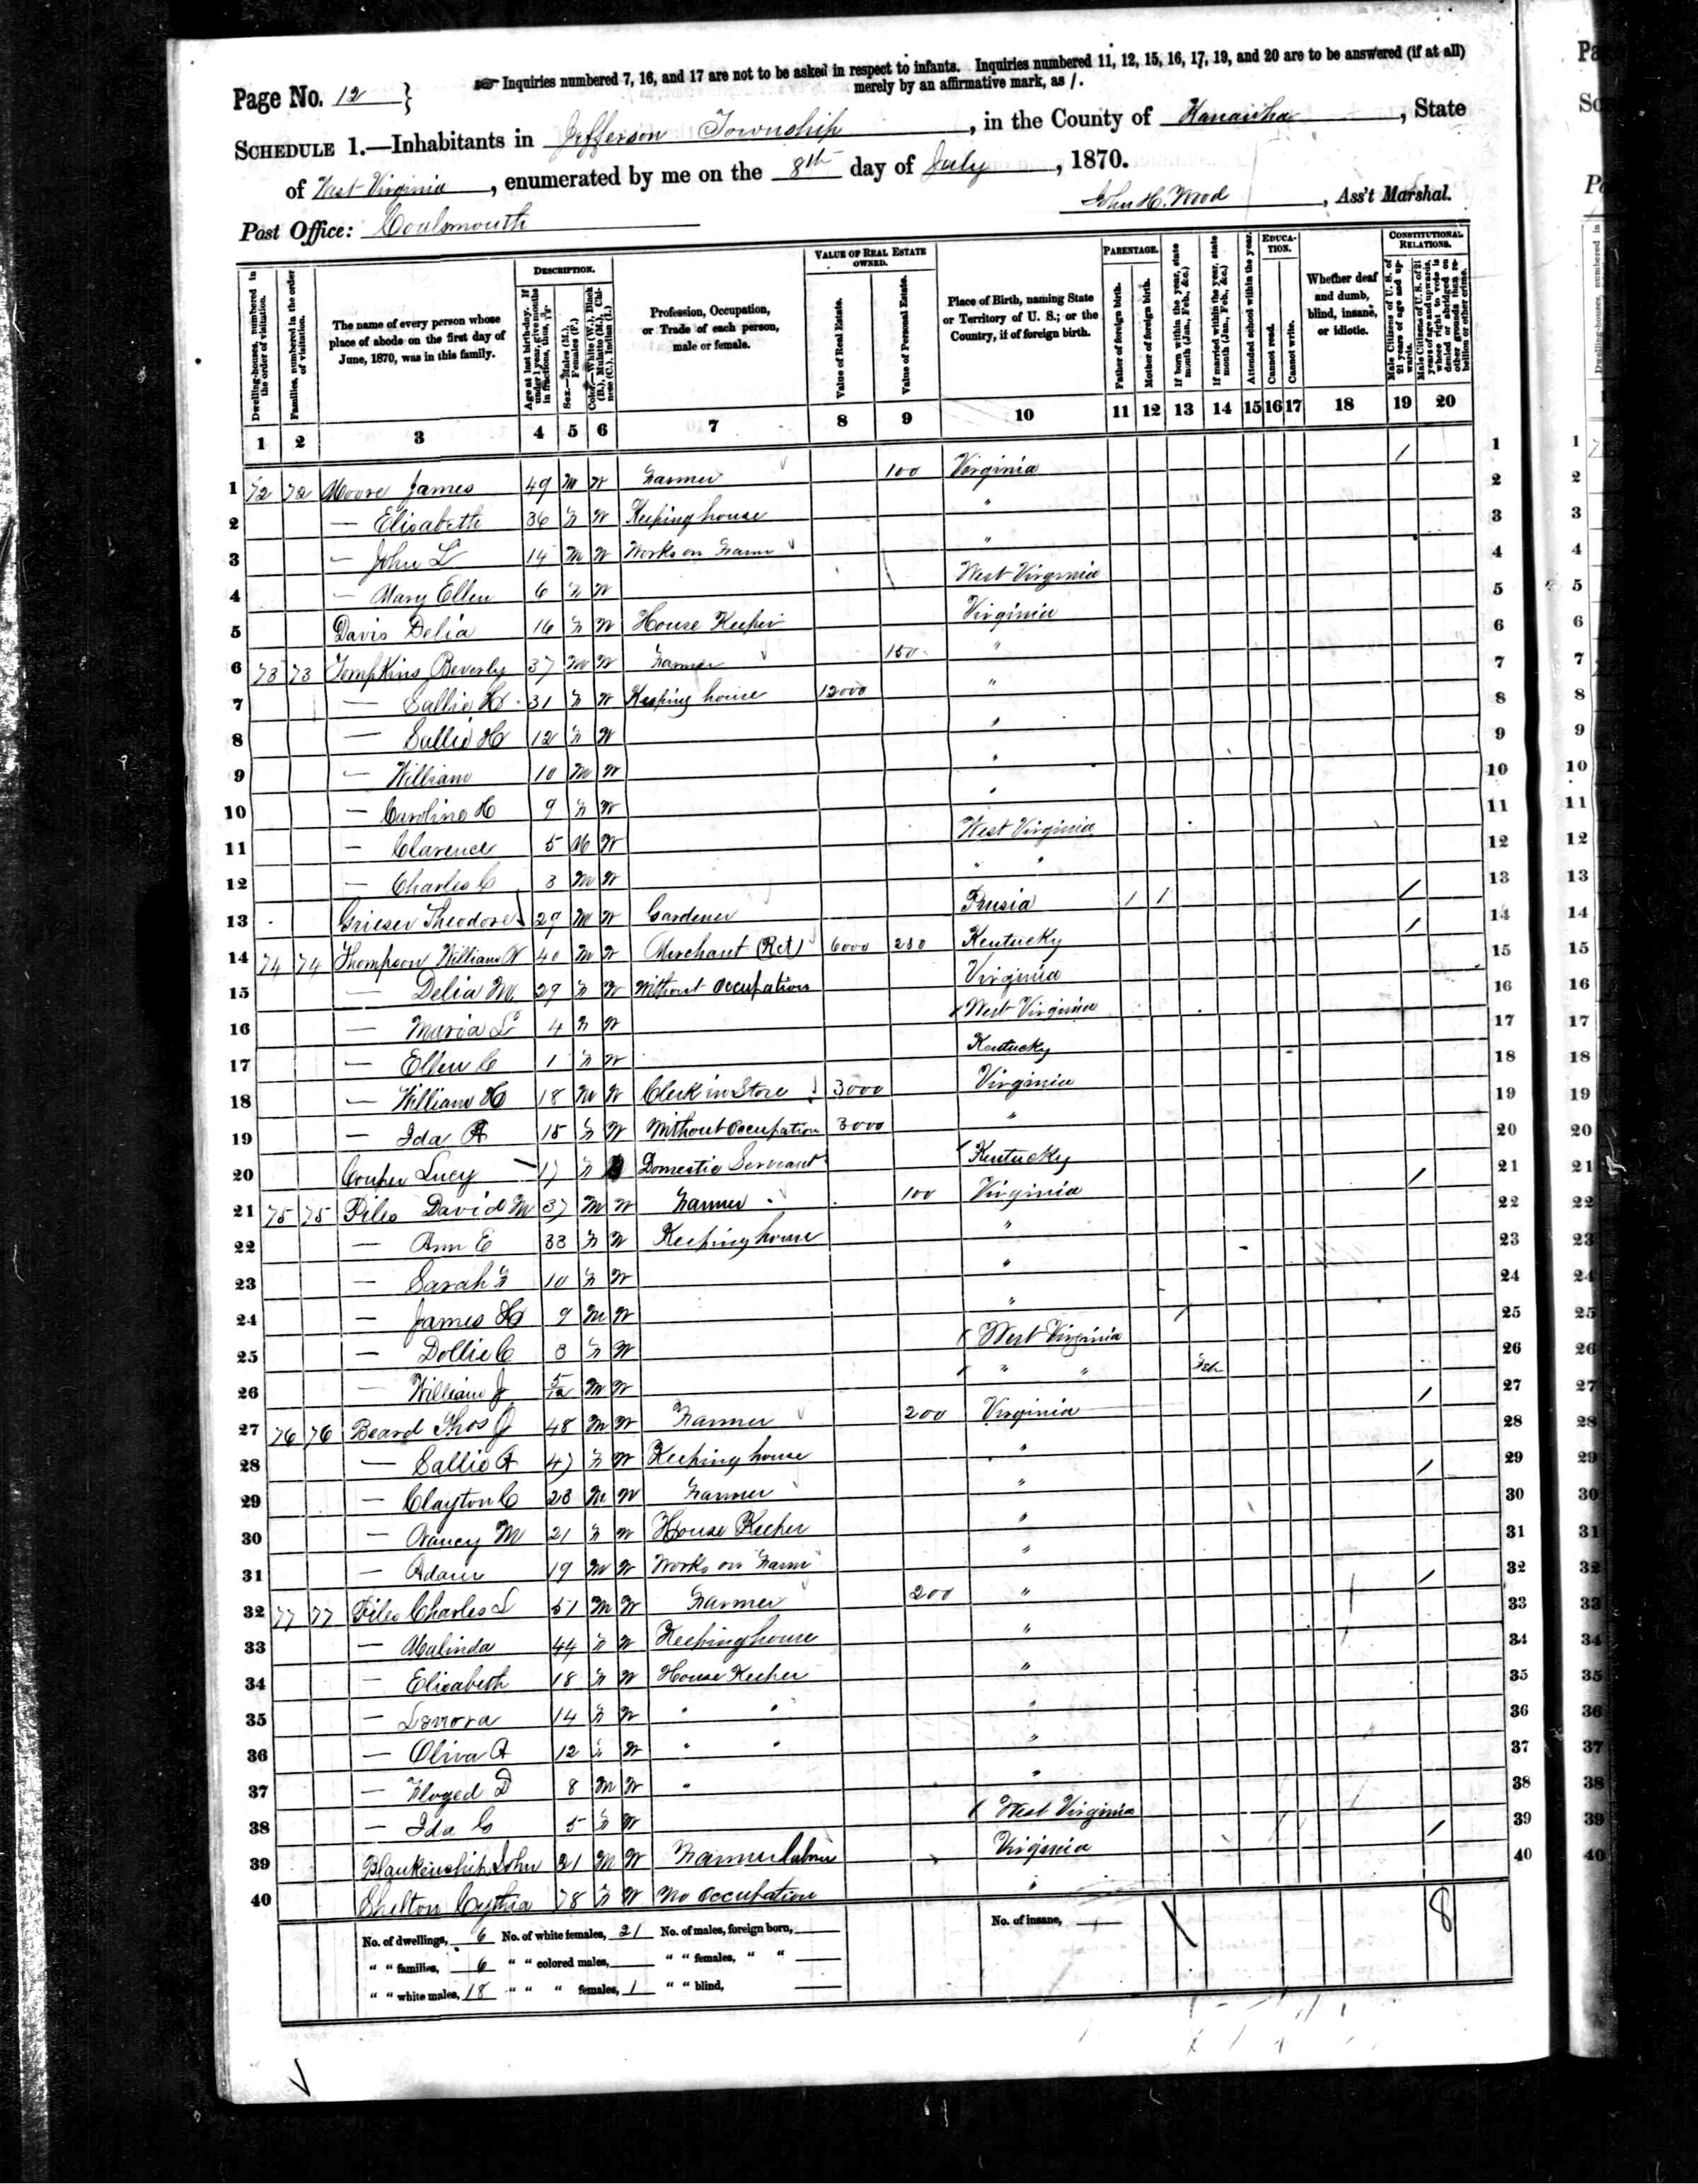 Page No. 12 }
Inquiries numbered 7, 16, and 17 are not to be asked in respect to infants. Inquiries numbered 11, 12, 15, 16, 17, 19, and 20 are to be answered (if at all)
merely by an affirmative mark, as /.
SCHEDULE 1.—Inhabitants in Jefferson Township, in the County of Kanawha, State
of West Virginia, enumerated by me on the 8th day of July, 1870.
Post Office: Coalsmouth
John H. Wood, Ass't Marshal.
Dwelling-houses, numbered in the order of visitation.
Families, numbered in the order of visitation.
The name of every person whose place of abode on the first day of June, 1870, was in this family.
DESCRIPTION.
Age at last birth-day. If under 1 year, give months in fractions, thus,
Sex.—Males (M.), Females (F.)
Color.—White (W.), Black (B.), Mulatto (M.), Chinese (C.), Indian (I.)
Profession, Occupation, or Trade of each person, male or female.
VALUE OF REAL ESTATE OWNED.
Value of Real Estate.
Value of Personal Estate.
Place of Birth, naming State or Territory of U. S.; or the Country, if of foreign birth.
PARENTAGE.
Father of foreign birth.
Mother of foreign birth.
If born within the year, state month (Jan., Feb., &c.)
If married within the year, state month (Jan., Feb., &c.)
Attended school within the year.
EDUCATION.
Cannot read.
Cannot write.
Whether deaf and dumb, blind, insane, or idiotic.
CONSTITUTIONAL RELATIONS.
Male Citizens of U. S. of 21 years of age and upwards.
Male Citizens of U. S. of 21 years of age and upwards, where right to vote is denied or abridged on other grounds than rebellion or other crime.
1 2 3 4 5 6 7 8 9 10 11 12 13 14 15 16 17 18 19 20
1 72 72 Moore James 49 M W Farmer 100 Virginia / 1
2 — Elisabeth 36 F W Keeping house " 2
3 — John L 14 M W Works on Farm " 3
4 — Mary Ellen 6 F W West Virginia 4
5 Davis Delia 16 F W House Keeper Virginia 5
6 73 73 Tompkins Beverly 37 M W Farmer 150 " 6
7 — Sallie H 31 F W Keeping house 12000 " 7
8 — Sallie H 12 F W " 8
9 — William 10 M W " 9
10 — Caroline H 9 F W " 10
11 — Clarence 5 M W West Virginia 11
12 — Charles C 3 M W " " 12
13 Grieser Theodore 29 M W Gardener Prusia / / / 13
14 74 74 Thompson William W 40 M W Merchant (Ret) 6000 250 Kentucky / 14
15 — Delia M 29 F W Without Occupation Virginia 15
16 — Maria L 4 F W West Virginia 16
17 — Ellen C 1 F W Kentucky 17
18 — William H 18 M W Clerk in Store 3000 Virginia 18
19 — Ida A 15 F W Without Occupation 3000 " 19
20 Couper Lucy 17 F Domestic Servant Kentucky 20
21 75 75 Files David M 37 M W Farmer 100 Virginia / 21
22 — Ann E 33 F W Keeping house " 22
23 — Sarah F 10 F W " 23
24 — James H 9 M W " 24
25 — Dollie C 3 F W West Virginia 25
26 — William J 5/12 M W " " Feb 26
27 76 76 Beard Thos J 48 M W Farmer 200 Virginia / 27
28 — Sallie A 47 F W Keeping house " 28
29 — Clayton C 23 M W Farmer " / 29
30 — Nancy M 21 F W House Keeper " 30
31 — Adam 19 M W Works on Farm " 31
32 77 77 Files Charles L 51 M W Farmer 200 " / 32
33 — Malinda 44 F W Keeping house " 33
34 — Elisabeth 18 F W House Keeper " 34
35 — Lenora 14 F W " " " 35
36 — Oliva A 12 F W " " " 36
37 — Floyed D 8 M W " " 37
38 — Ida C 5 F W West Virginia 38
39 Blankenship John 21 M W Farm Labor Virginia / 39
40 Shelton Cythia 78 F W No Occupation " 40
No. of dwellings, 6 No. of white females, 21 No. of males, foreign born, No. of insane, 8
" " families, 6 " " colored males, " " females, " "
" " white males, 18 " " " females, 1 " " blind,